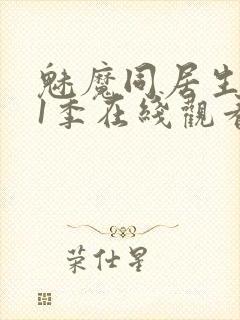 魅魔同居生
1季在綫觀看
荣仕星